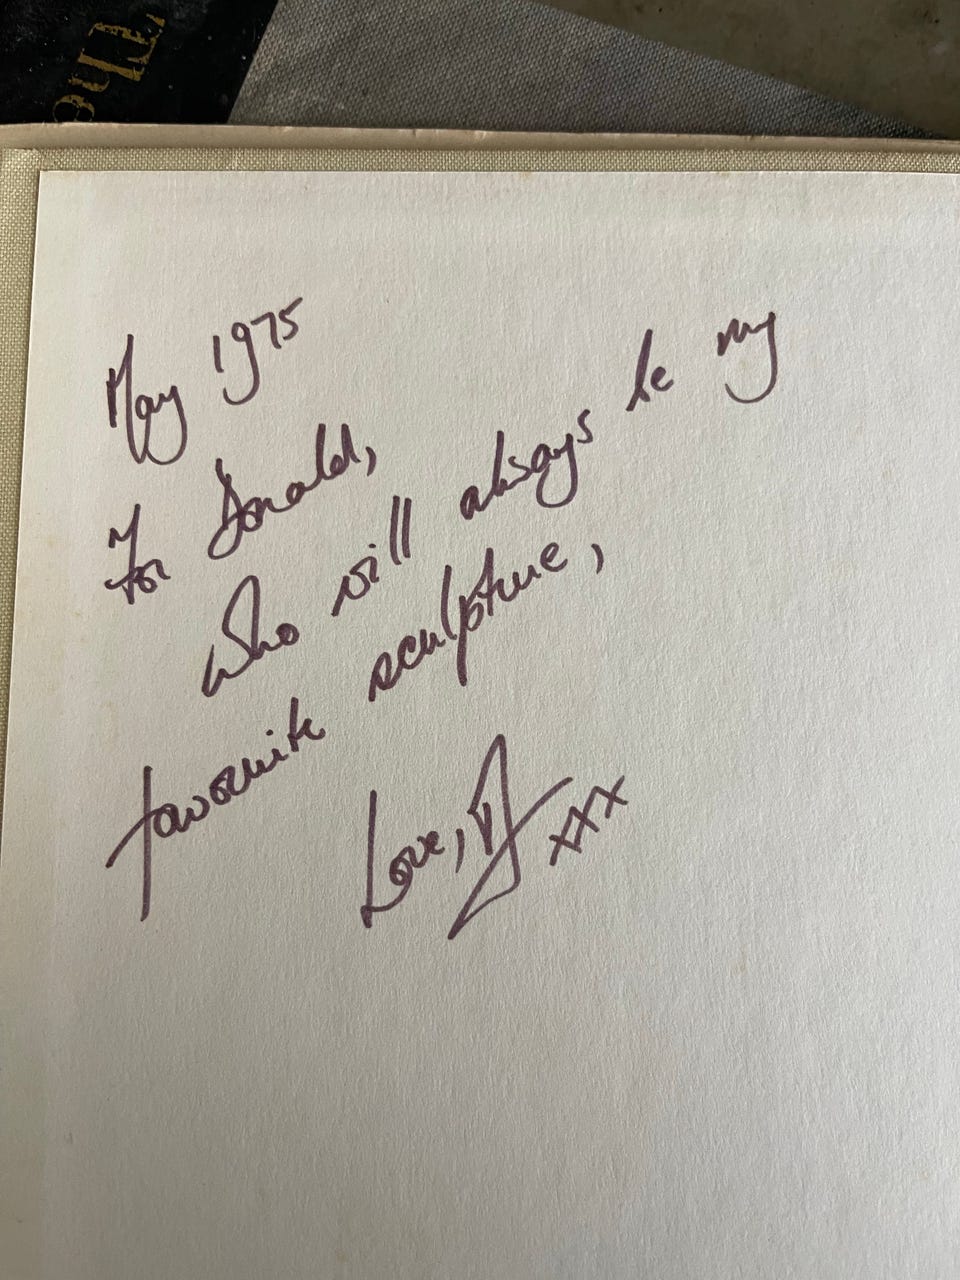 The
May 1975
For Donald,
who will always be my
favourite sculpture,
Love,
xxx